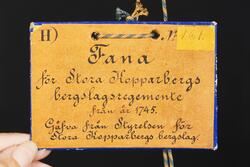 H) № 161.
Fana
för Stora Kopparbergs
bergslagsregemente
från år 1745.
Gåfva från Styrelsen för
Stora Kopparbergs bergslag.